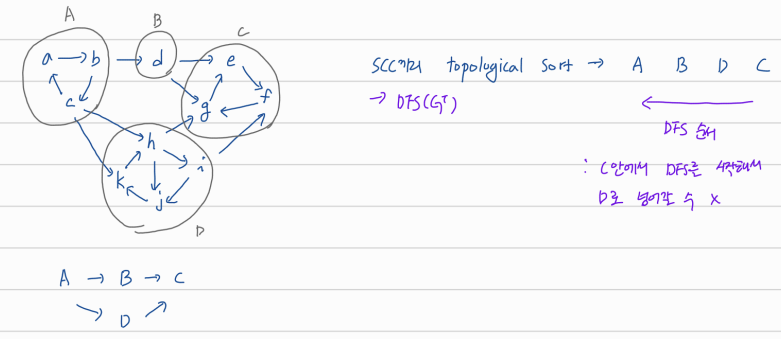 A
B
C
a b d e
c g f
h
k i
j
D
A → B → C
D
SCC끼리 topological sort → A B D C
→ DFS(Gᵀ)
DFS 순서
∴ C 안에서 DFS를 시작해서
D로 넘어갈 수 x